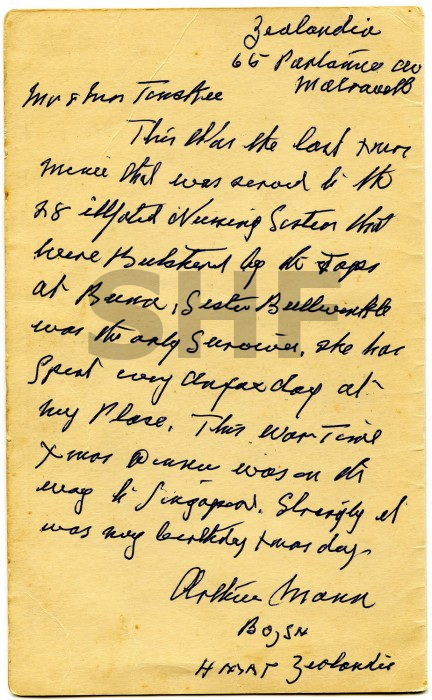 Zealandia
65 Parlanna av
Matravell
Mr & Mrs
This Was the last Xmas
menue that was served to the
28 illfated Nursing Sisters that
were Butchered by the Japs
at Banna, Sester Bullwinkle
was the only Surviver. She has
Spent many Anzac day at
my Place. This War Time
Xmas Dinner was on the
way to Singapore. Strangly it
was my birthday Xmas day.
Arthur Mann
SHF
Zealandia